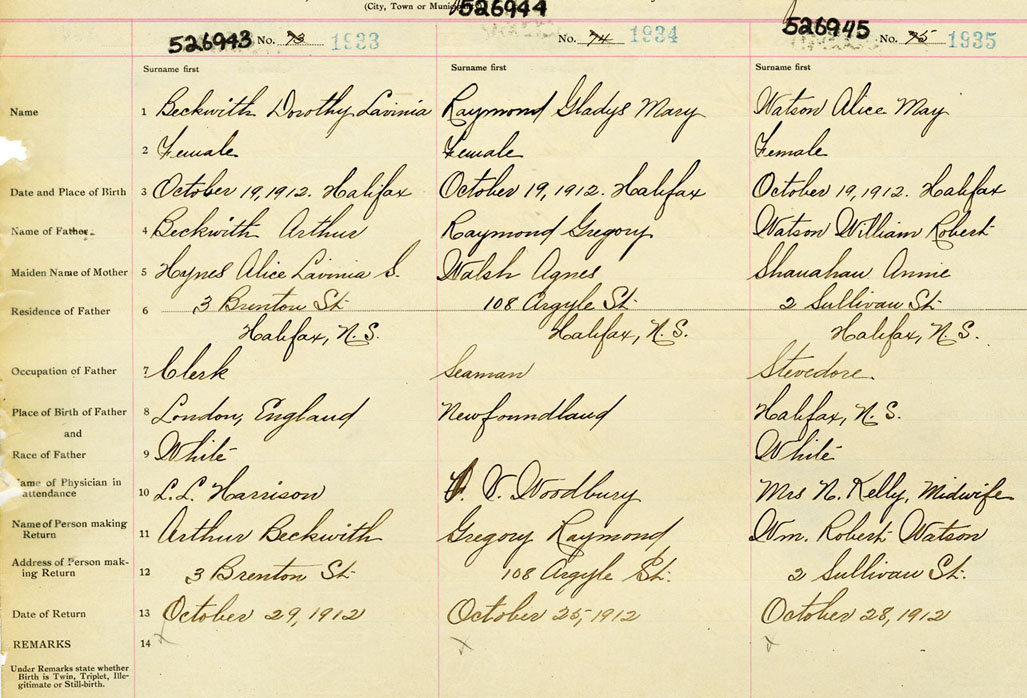 (City, Town or Munici
526944
526943 No. 73 1933
No. 74 1934
526945 No. 75 1935
Surname first
Surname first
Surname first
Name 1 Beckwith Dorothy Lavinia Raymond Gladys Mary Watson Alice May
2 Female Female Female
Date and Place of Birth 3 October 19, 1912. Halifax October 19, 1912. Halifax October 19, 1912. Halifax
Name of Father 4 Beckwith Arthur Raymond Gregory Watson William Robert
Maiden Name of Mother 5 Haynes Alice Lavinia S. Walsh Agnes Shanahan Annie
Residence of Father 6 3 Brenton St. 108 Argyle St. 2 Sullivan St.
Halifax, N.S. Halifax, N.S. Halifax, N.S.
Occupation of Father 7 Clerk Seaman Stevedore
Place of Birth of Father 8 London, England Newfoundland Halifax, N.S.
and
Race of Father 9 White White
Name of Physician in
attendance 10 L.L. Harrison Woodbury Mrs N. Kelly, Midwife
Name of Person making
Return 11 Arthur Beckwith Gregory Raymond Wm. Robert Watson
Address of Person mak-
ing Return 12 3 Brenton St. 108 Argyle St. 2 Sullivan St.
Date of Return 13 October 29, 1912 October 25, 1912 October 28, 1912
REMARKS 14 x x x
Under Remarks state whether
Birth is Twin, Triplet, Ille-
gitimate or Still-birth.